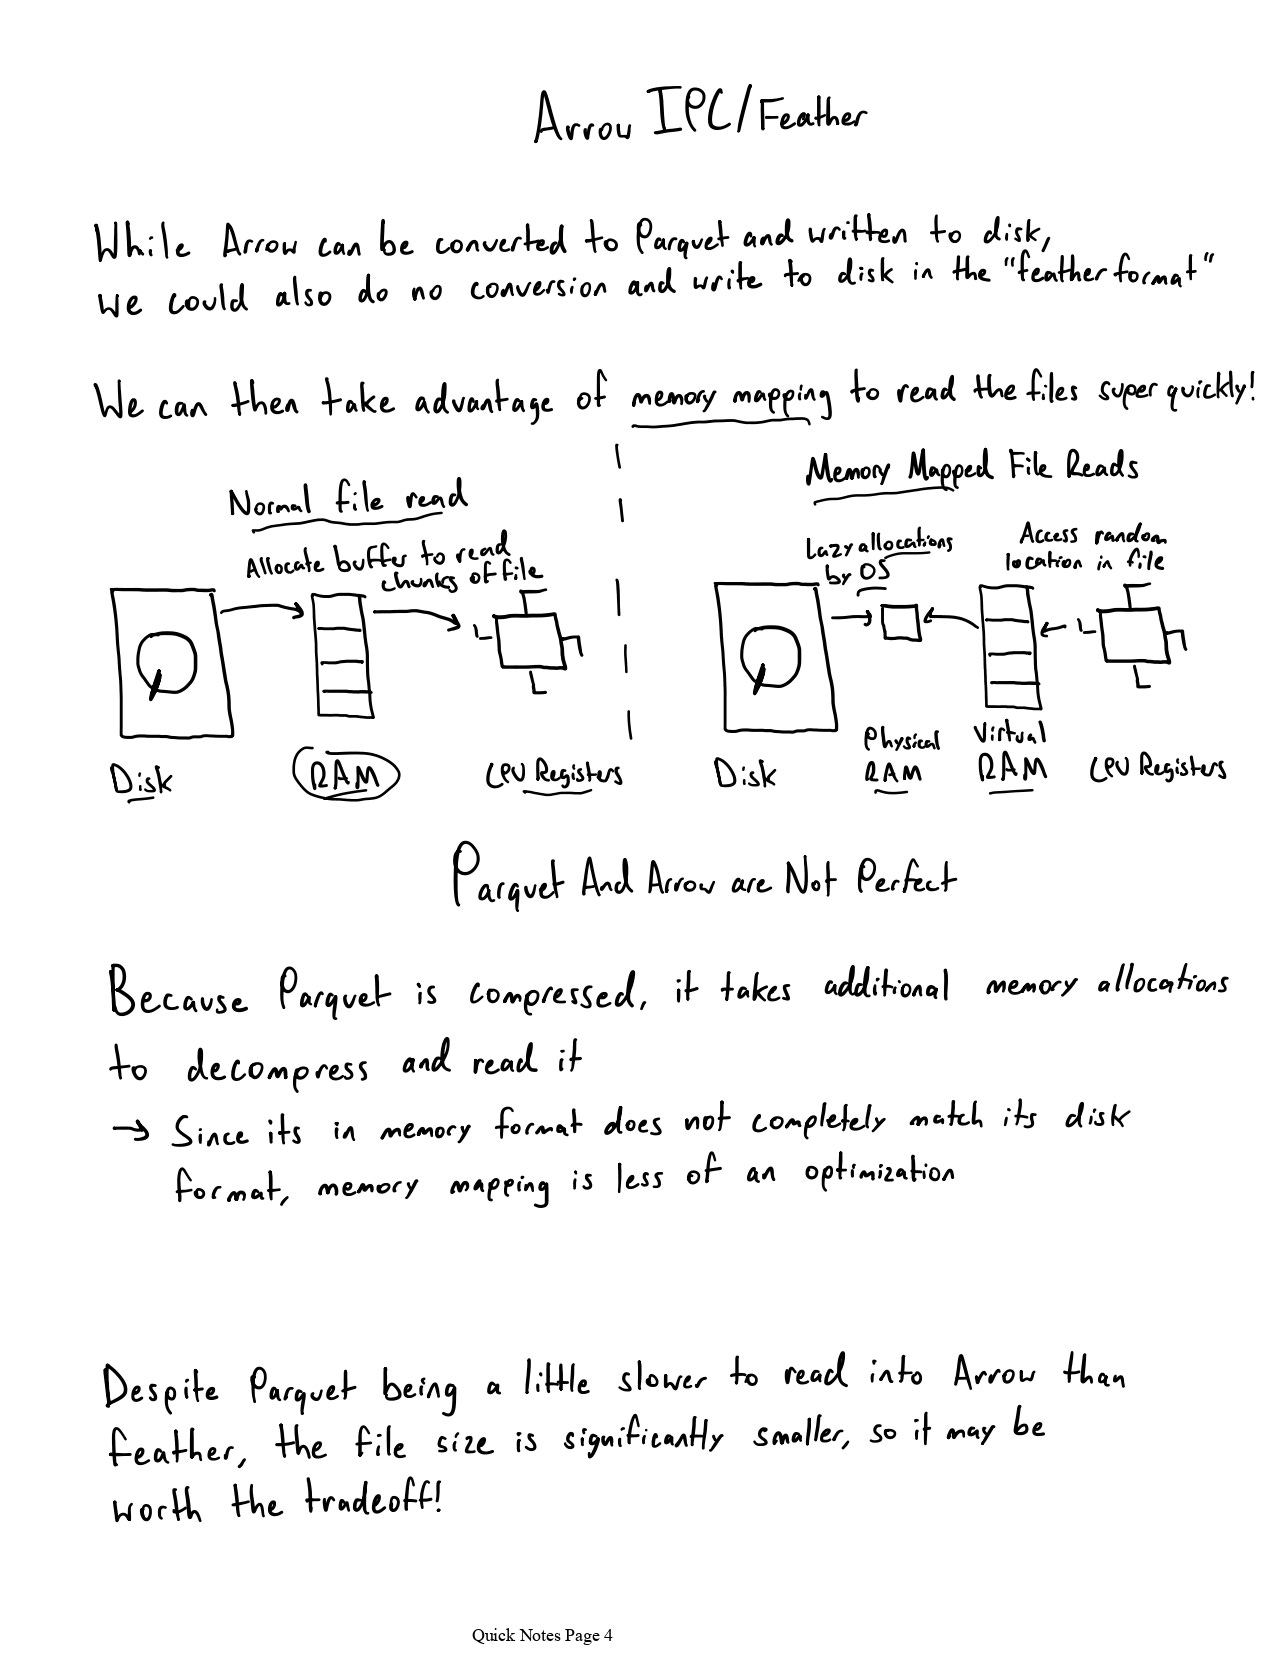 Arrow IPC/Feather
While Arrow can be converted to Parquet and written to disk,
we could also do no conversion and write to disk in the "feather format"
We can then take advantage of memory mapping to read the files super quickly!
Normal file read
Allocate buffer to read
chunks of file
Disk
RAM
CPU Registers
Memory Mapped File Reads
Lazy allocations
by OS
Access random
location in file
Disk
Physical
RAM
Virtual
RAM
CPU Registers
Parquet And Arrow are Not Perfect
Because Parquet is compressed, it takes additional memory allocations
to decompress and read it
→ Since its in memory format does not completely match its disk
format, memory mapping is less of an optimization
Despite Parquet being a little slower to read into Arrow than
feather, the file size is significantly smaller, so it may be
worth the tradeoff!
Quick Notes Page 4